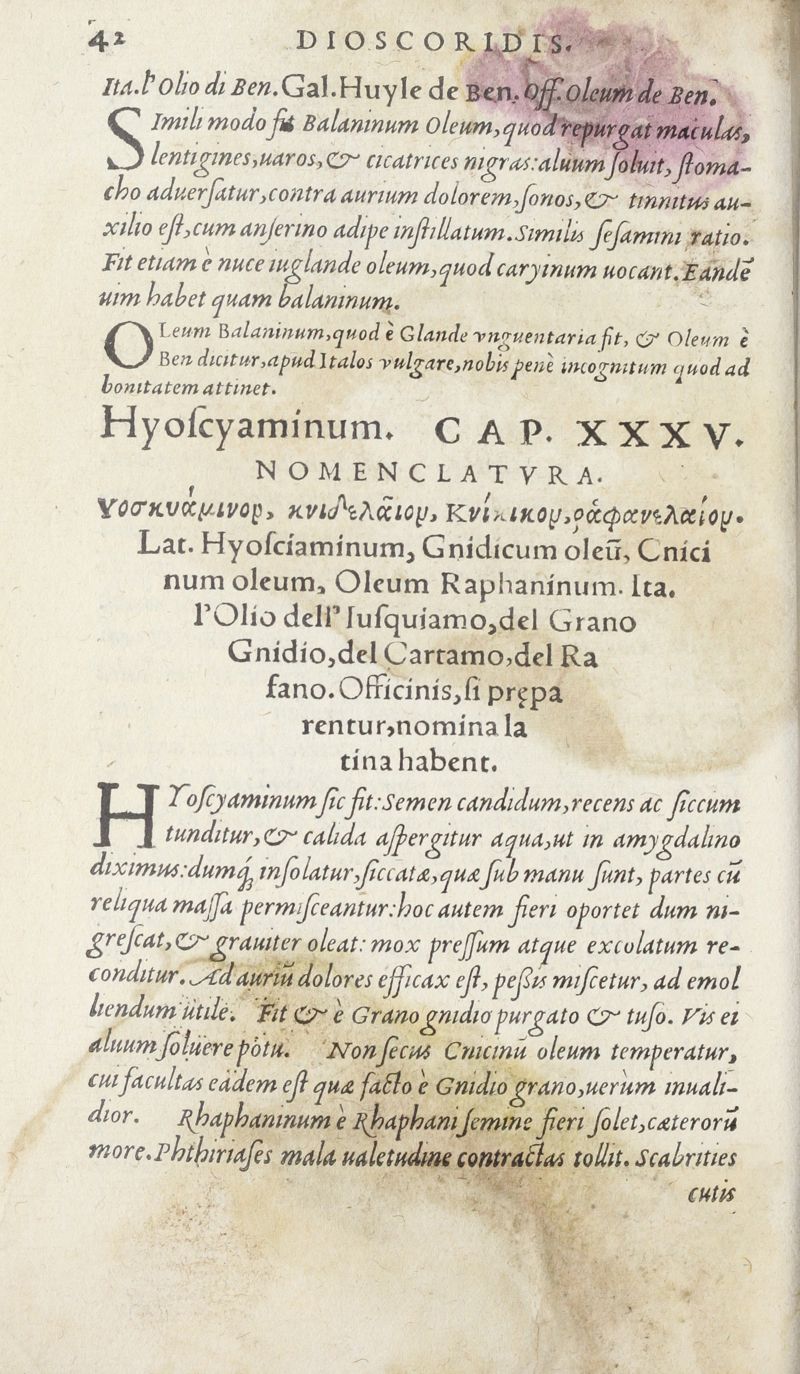 42 DIOSCORIDIS.
Ita. l' Olio di Ben. Gal. Huyle de Ben. Off. Oleum de Ben.
SImili modo fit Balaninum Oleum, quod repurgat maculas,
lentigines, uaros, & cicatrices nigras: aluum ſoluit, ſtoma-
cho aduerſatur, contra aurium dolorem, ſonos, & tinnitus au-
xilio eſt, cum anſerino adipe inſtillatum. Similis ſeſamini ratio.
Fit etiam è nuce iuglande oleum, quod caryinum uocant. Eandē
uim habet quam balaninum.
OLeum Balaninum, quod è Glande vnguentaria fit, & Oleum è
Ben dicitur, apud Italos vulgare, nobis penè incognitum quod ad
bonitatem attinet.
Hyoſcyaminum. CAP. XXXV.
NOMENCLATVRA.
Υοσκυάμινον, κνιδέλαιον, Κνίκικον, ῥάφανέλαιον.
Lat. Hyoſciaminum, Gnidicum oleū, Cnici
num oleum, Oleum Raphaninum. Ita.
l'Olio dell' Iuſquiamo, del Grano
Gnidio, del Cartamo, del Ra
fano. Officinis, ſi prępa
rentur, nomina la
tina habent.
HYoſcyaminum ſic fit: Semen candidum, recens ac ſiccum
tunditur, & calida aſpergitur aqua, ut in amygdalino
diximus: dumq́; inſolatur, ſiccatæ, quæ ſub manu ſunt, partes cū
reliqua maſſa permiſceantur: hoc autem fieri oportet dum ni-
greſcat, & grauiter oleat: mox preſſum atque excolatum re-
conditur. Ad auriū dolores efficax eſt, peſsis miſcetur, ad emol
liendum utile. Fit & è Grano gnidio purgato & tuſo. Vis ei
aluum ſoluere potu. Non ſecus Cnicinū oleum temperatur,
cui facultas eadem eſt quæ facto è Gnidio grano, uerùm inuali-
dior. Rhaphaninum è Rhaphani ſemine fieri ſolet, cæterorū
more. Phthiriaſes mala ualetudine contractas tollit. Scabrities
cutis